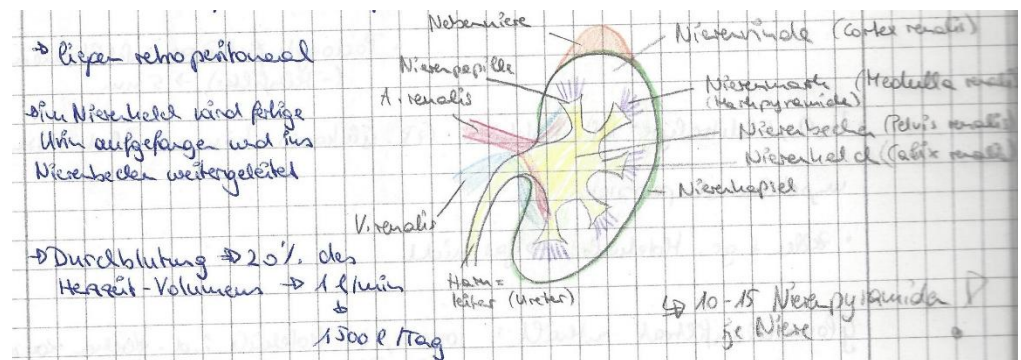 → liegen retroperitoneal
→ im Nierenkelch wird fertige
Urin aufgefangen und ins
Nierenbecken weitergeleitet
→ Durchblutung → 20% des
Herzzeit-Volumens → 1 l/min
↓
1500 l/Tag
Nebenniere
Nierenpapille
A. renalis
V. renalis
Harn=
leiter (Ureter)
Nierenrinde (Cortex renalis)
Nierenmark (Medulla renalis)
(Markpyramide)
Nierenbecken (Pelvis renalis)
Nierenkelch (Calix renalis)
Nierenkapsel
↳ 10-15 Nierenpyramiden
je Niere